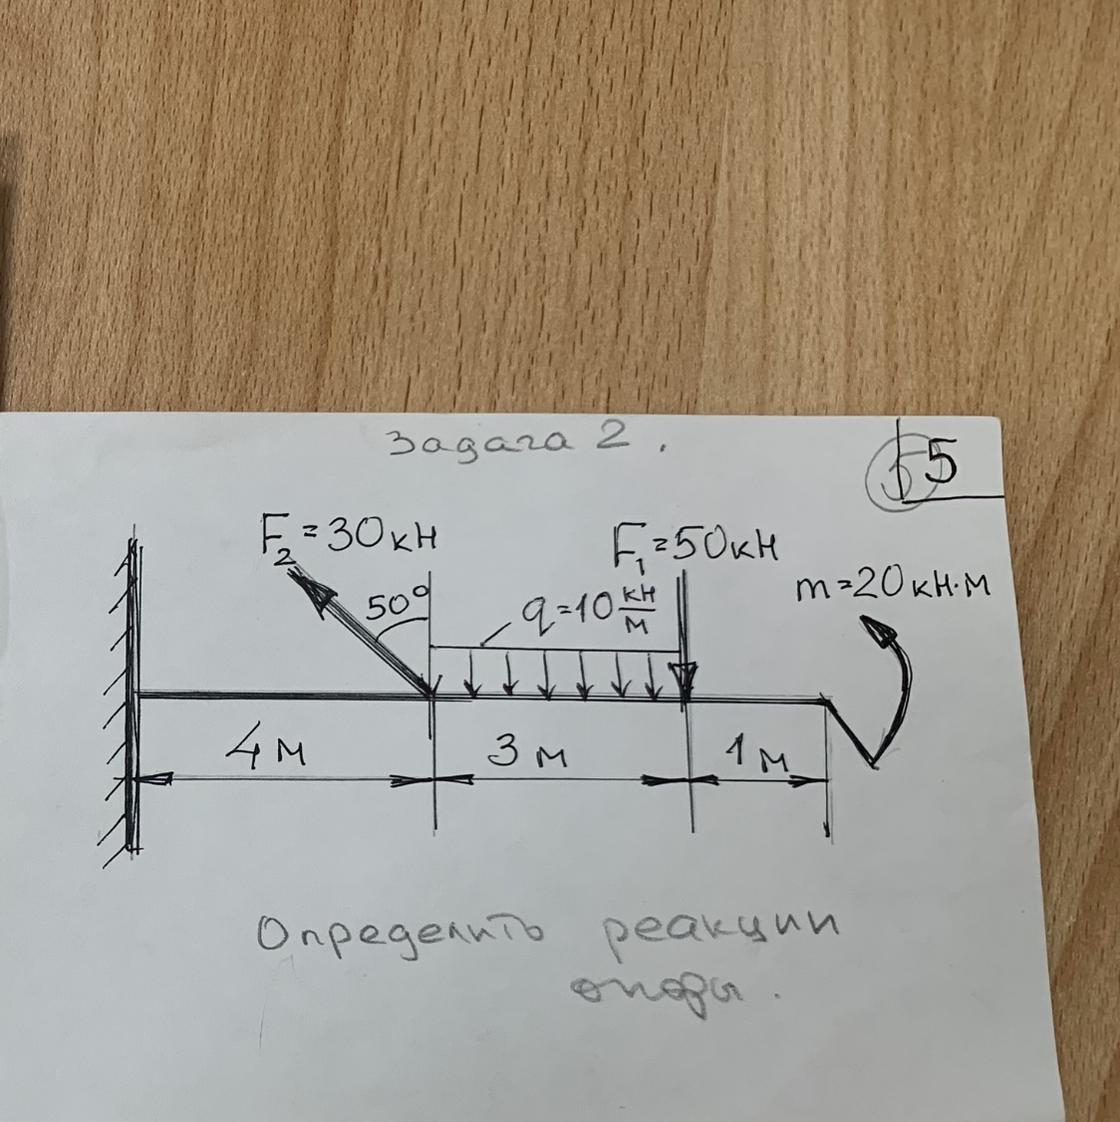 Задача 2.
5
F₂=30кН
F₁=50кН
50°
q=10 кН/м
m=20кН·м
4 м
3 м
1 м
Определить реакции
опоры.